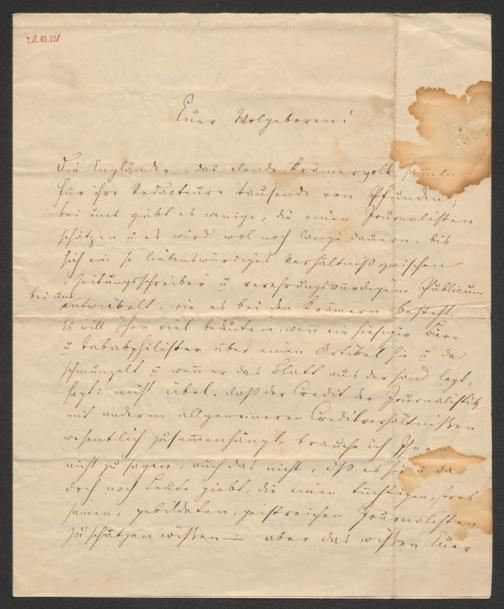 Euer Wolgeboren!
Die Engländer, das elende Krämervolk, sammeln
für ihre Redacteure tausende von Pfunden;
bei uns giebt es wenige, die einen Journalisten
schätzen u es wird wol noch lange dauern, bis
sich ein so liebenswürdiges Verhältniß zwischen
Zeitungsschreiber u verehrungswürdigem Publicum
bei uns
entwickelt, wie es bei den Krämern besteht.
Es will schon viel bedeuten, wenn ein hiesiger Bier-
u Tabakphilister über einen Artikel hie u da
schmunzelt u wenn er das Blatt aus der Hand legt,
sagt: nicht übel. Daß der Credit der Journalistik
mit anderen allgemeineren Creditverhältnissen
wesentlich zusammenhängt, brauche ich
nicht zu sagen, auch das nicht, daß es hie u da
doch noch Leute giebt, die einen tüchtigen, streb
samen, gebildeten, geistreichen Journalisten
zu schätzen wissen — aber das wissen Euer